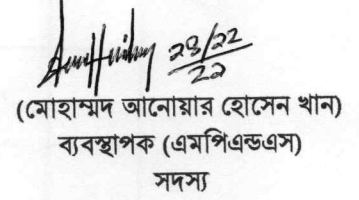 ২৪/১১
২২
(মোহাম্মদ আনোয়ার হোসেন খান)
ব্যবস্থাপক (এমপিএন্ডএস)
সদস্য